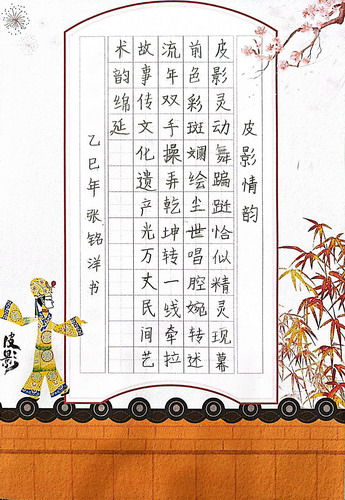 皮影情韵
皮影灵动舞蹁跹恰似精灵现幕
前色彩斑斓绘尘世唱腔婉转述
流年双手操弄乾坤转一线牵拉
故事传文化遗产光万丈民间艺
术韵绵延
乙巳年张铭洋书
皮影